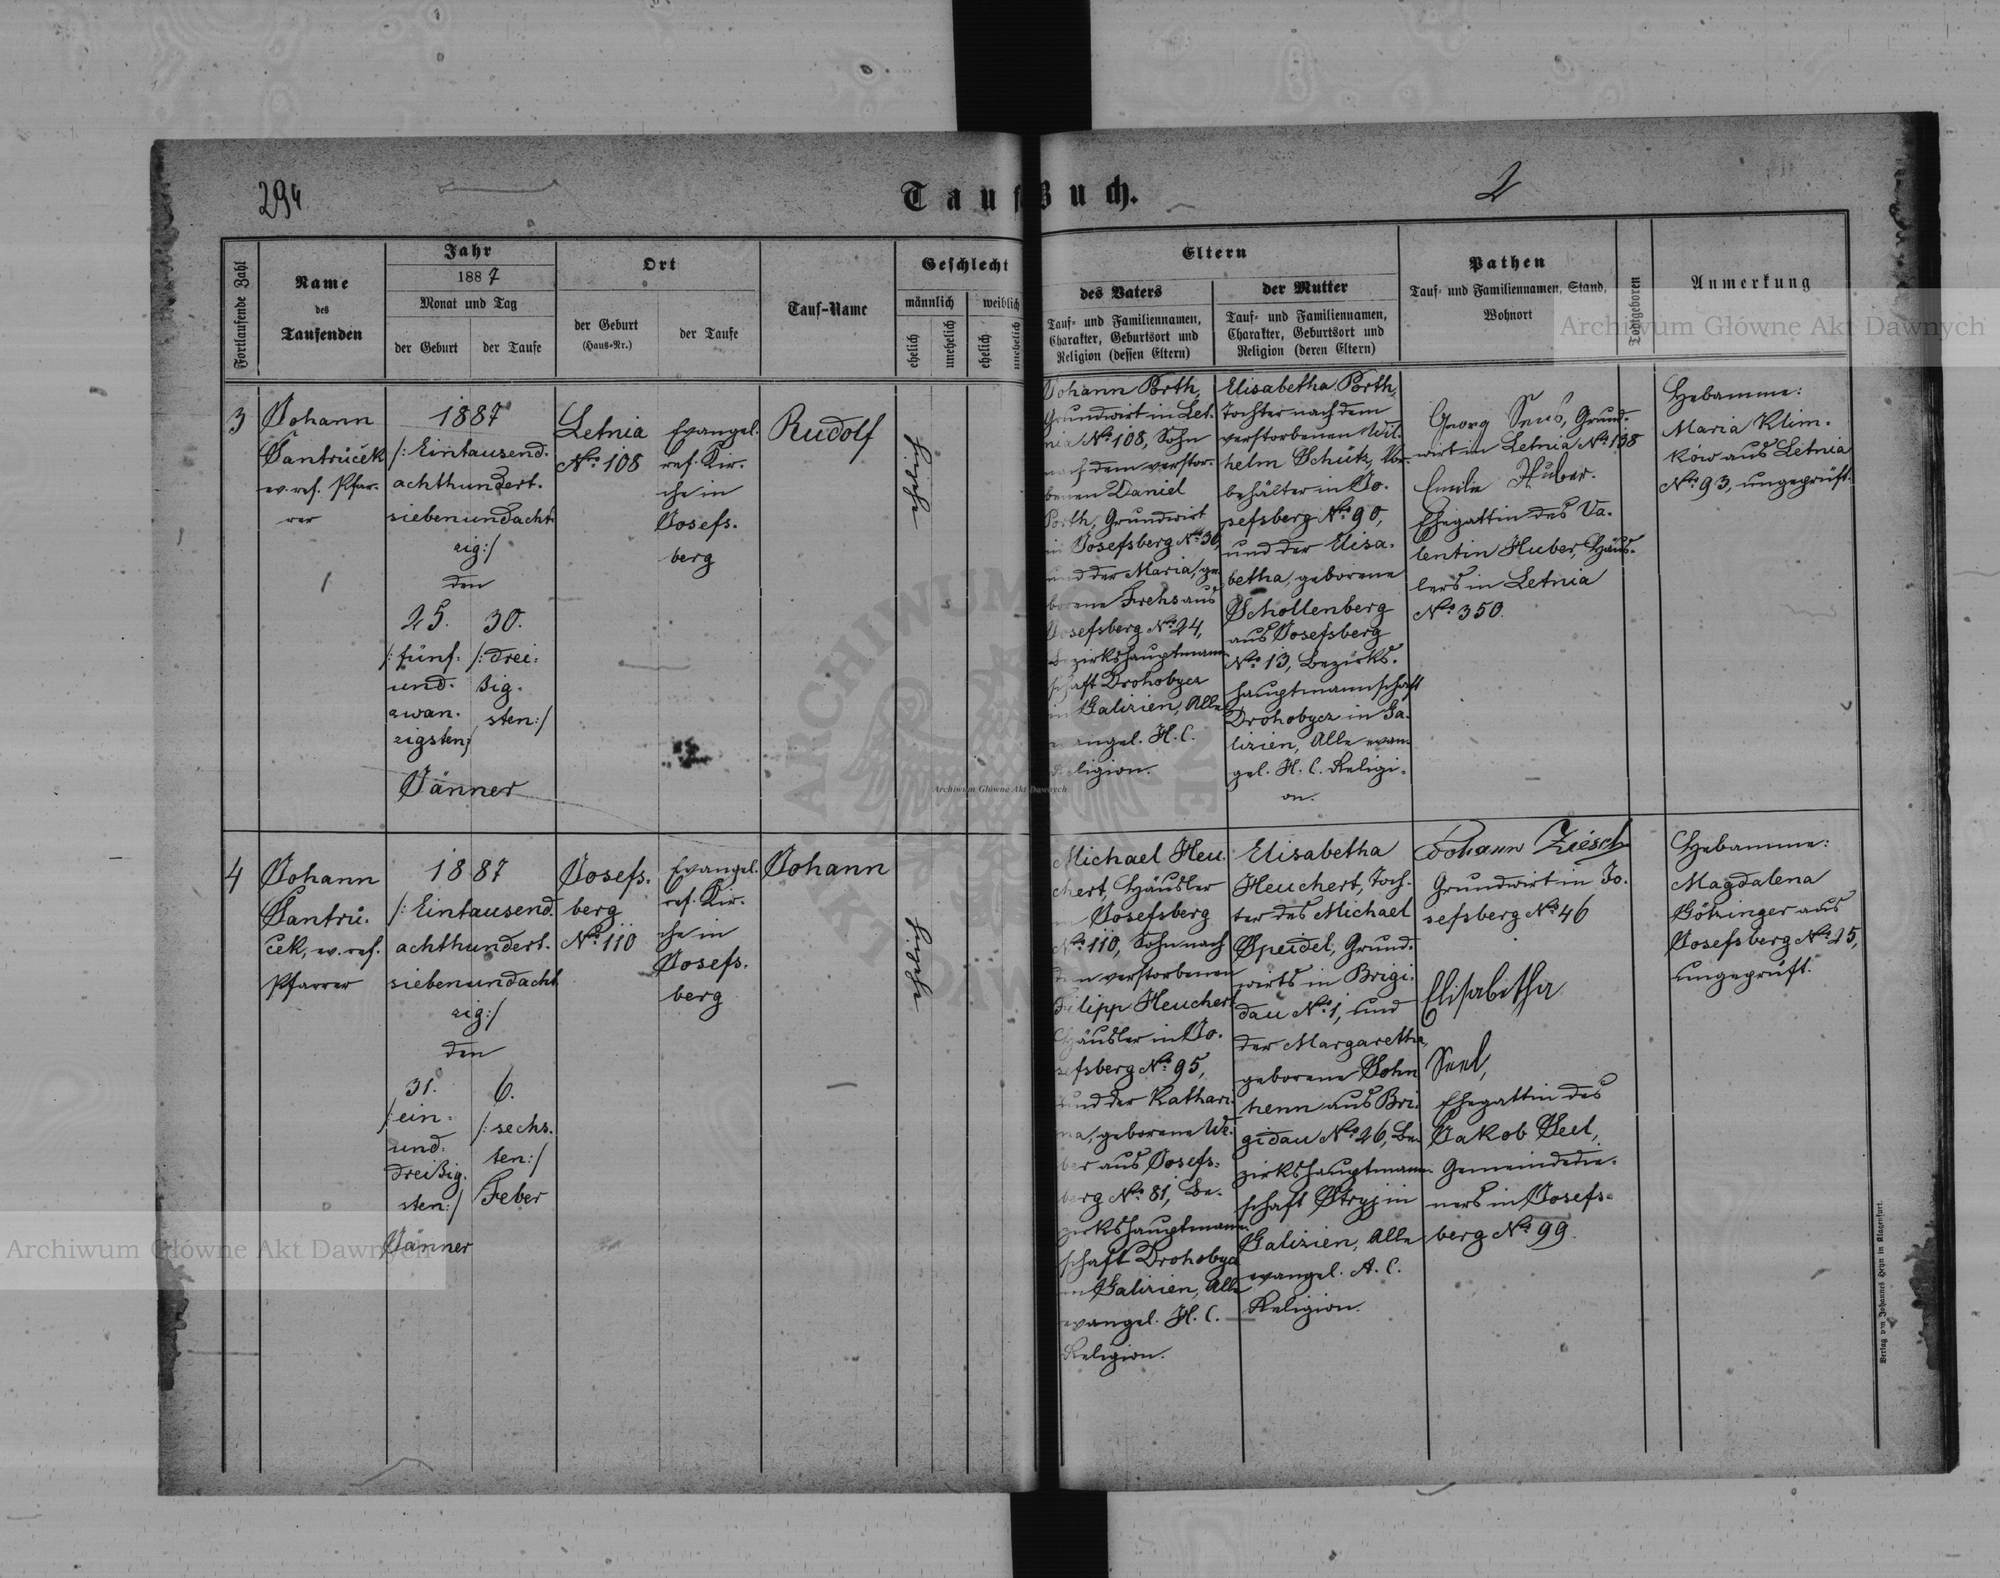 294
2
Tauf-Buch.
Fortlaufende Zahl
Name
des
Taufenden
Jahr
1887
Monat und Tag
der Geburt
der Taufe
Ort
der Geburt
(Haus-Nr.)
der Taufe
Tauf-Name
Geschlecht
männlich
weiblich
ehelich
unehelich
ehelich
unehelich
Eltern
des Vaters
Tauf- und Familiennamen,
Charakter, Geburtsort und
Religion (dessen Eltern)
der Mutter
Tauf- und Familiennamen,
Charakter, Geburtsort und
Religion (deren Eltern)
Pathen
Tauf- und Familiennamen, Stand,
Wohnort
Todtgeboren
Anmerkung
3
Johann
Šantrůček
ev. ref. Pfar-
rer
1887
/: Eintausend-
achthundert-
siebenundacht-
zig :/
den
25.
/: fünf-
und-
zwan-
zigsten :/
30.
/: drei-
ßig-
sten :/
Jänner
Letnia
No. 108
Evangel.
ref. Kir-
che in
Josefs-
berg
Rudolf
ehelich
Johann Porth,
Grundwirt in Let-
nia No. 108, Sohn
nach dem verstor-
benen Daniel
Porth, Grundwirt
in Josefsberg No. 36,
und der Maria, ge-
borene Frehs aus
Josefsberg No. 24,
Bezirkshauptmann-
schaft Drohobycz
in Galizien, Alle
evangel. H. C.
Religion.
Elisabetha Porth,
Tochter nach dem
verstorbenen Wil-
helm Schütz, Vor-
behälter in Jo-
sefsberg No. 90,
und der Elisa-
betha, geborene
Schollenberg
aus Josefsberg
No. 13, Bezirks-
hauptmannschaft
Drohobycz in Ga-
lizien, Alle evan-
gel. H. C. Religi-
on.
Georg Grund-
wirt in Letnia No. 138
Emilie Huber.
Ehegattin des Va-
lentin Huber, Häus-
lers in Letnia
No. 350.
Hebamme:
Maria Klim-
ków aus Letnia
No. 93, ungeprüft.
4
Johann
Šantrů-
ček, ev. ref.
Pfarrer
1887
/: Eintausend-
achthundert-
siebenundacht-
zig :/
den
31.
/: ein-
und-
dreißig-
sten :/
Jänner
6.
/: sechs-
ten :/
Feber
Josefs-
berg
No. 110
Evangel.
ref. Kir-
che in
Josefs-
berg
Johann
ehelich
Michael Heu-
chert, Häusler
in Josefsberg
No. 110, Sohn nach
dem verstorbenen
Filipp Heuchert
Häusler in Jo-
sefsberg No. 95,
und der Kathari-
na, geborene We-
ber aus Josefs-
berg No. 81, Be-
zirkshauptmann-
schaft Drohobycz
in Galizien, Alle
evangel. H. C.
Religion.
Elisabetha
Heuchert, Toch-
ter des Michael
Speidel, Grund-
wirts in Brigi-
dau No. 1, und
der Margaretha,
geborene Sohn
henn aus Bri-
gidau No. 26, Be-
zirkshauptmann-
schaft Stryj in
Galizien, Alle
evangel. A. C.
Religion.
Johann Ziesch
Grundwirt in Jo-
sefsberg No. 46
Elisabetha
Seel,
Ehegattin des
Jakob Seel,
Gemeindedie-
ners in Josefs-
berg No. 99.
Hebamme:
Magdalena
Götzinger aus
Josefsberg No. 25,
ungeprüft.
Verlag von Johannes Heyn in Klagenfurt.
Archiwum Główne Akt Dawnych
Archiwum Główne Akt Dawnych
Archiwum Główne Akt Dawnych